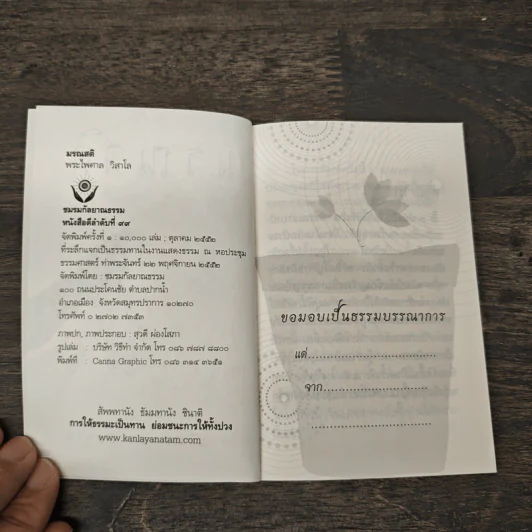 มรณสติ
พระไพศาล วิสาโล
ชมรมกัลยาณธรรม
หนังสือดีลำดับที่ ๙๙
จัดพิมพ์ครั้งที่ ๑ : ๑๐,๐๐๐ เล่ม ; ตุลาคม ๒๕๕๒
ที่ระลึกแจกเป็นธรรมทานในงานแสดงธรรม ณ หอประชุม
ธรรมศาสตร์ ท่าพระจันทร์ ๒๒ พฤศจิกายน ๒๕๕๒
จัดพิมพ์โดย : ชมรมกัลยาณธรรม
๑๐๐ ถนนประโคนชัย ตำบลปากน้ำ
อำเภอเมือง จังหวัดสมุทรปราการ ๑๐๒๗๐
โทรศัพท์ ๐ ๒๗๐๒ ๗๓๕๓
ภาพปก, ภาพประกอบ : สุวดี ผ่องโสภา
รูปเล่ม : บริษัท วิธีทำ จำกัด โทร ๐๘๖ ๗๘๗ ๘๘๐๐
พิมพ์ที่ : Canna Graphic โทร ๐๘๖ ๓๑๔ ๓๖๕๑
สัพพทานัง ธัมมทานัง ชินาติ
การให้ธรรมะเป็นทาน ย่อมชนะการให้ทั้งปวง
www.kanlayanatam.com
ขอมอบเป็นธรรมบรรณาการ
แด่......................................
จาก................................
....................................